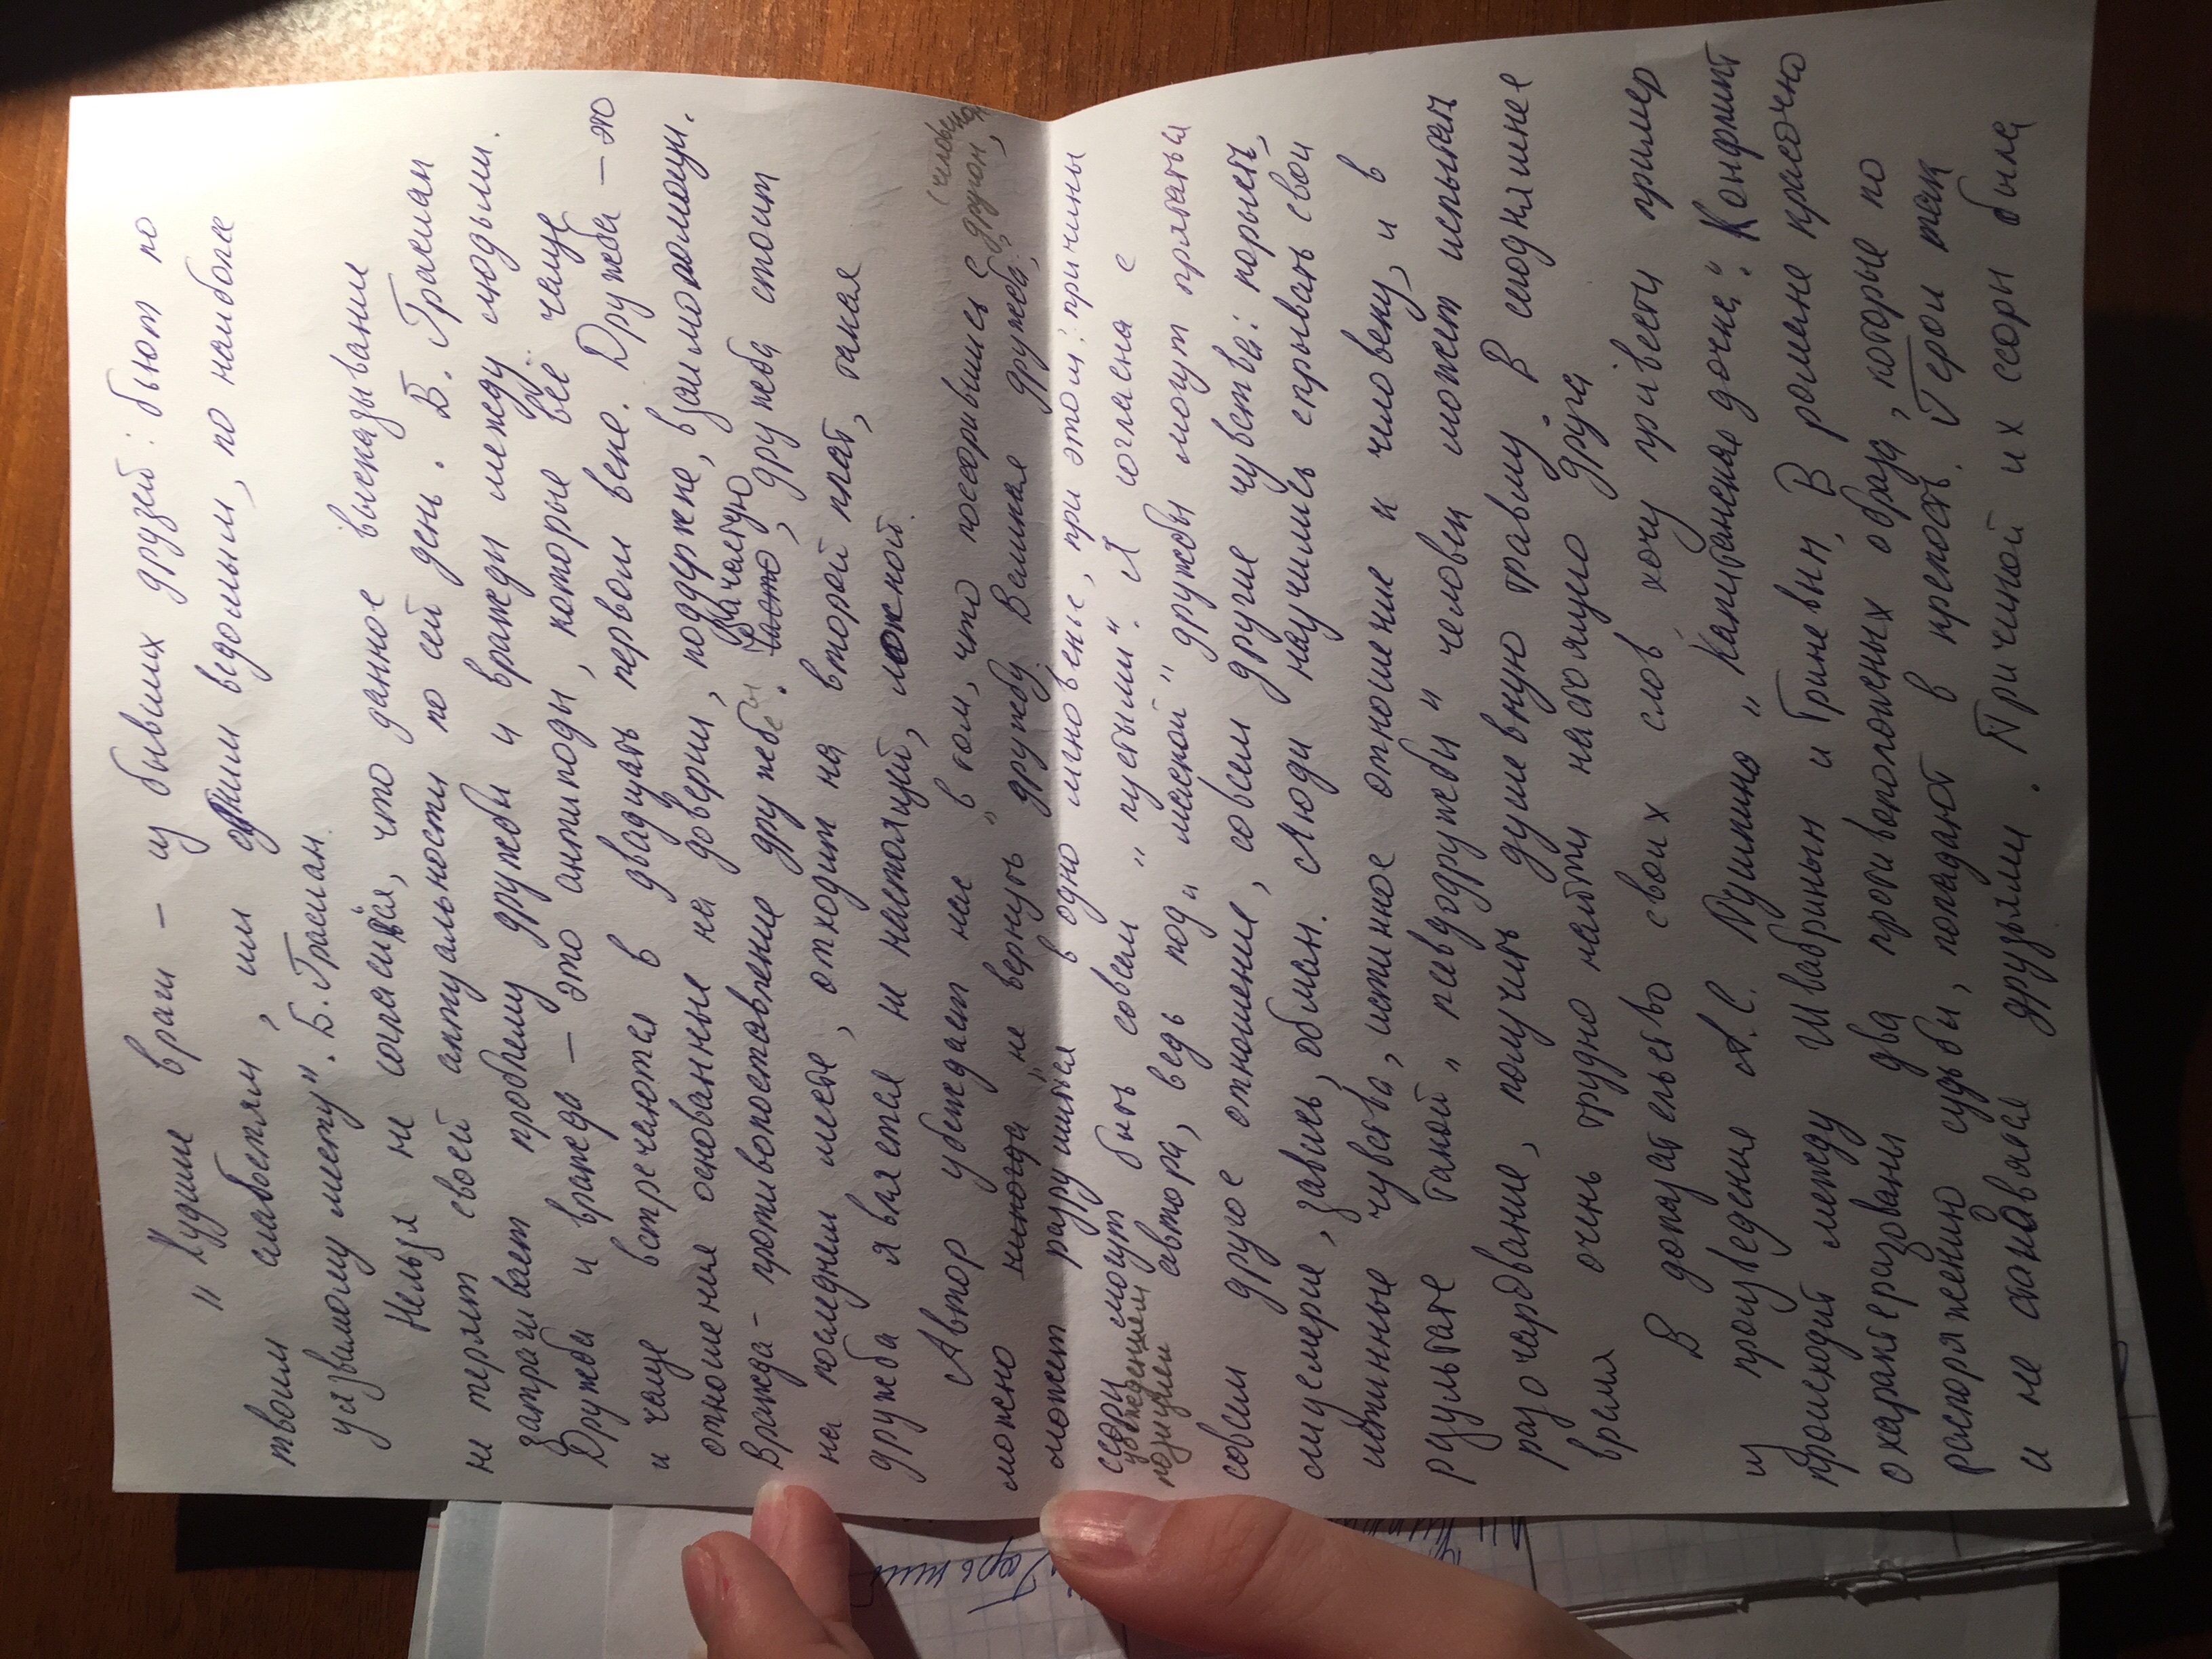 "Худшие враги – из бывших друзей: бьют по
твоим слабостям, им одним ведомым, по наиболее
уязвимому месту". Б. Грасиан.
Нельзя не согласиться, что данное высказывание
не теряет своей актуальности по сей день. Б. Грасиан
затрагивает проблему дружбы и вражды между людьми.
Дружба и вражда – это антиподы, которые всё чаще
и чаще встречаются в двадцать первом веке. Дружба – это
отношения основанные на доверии, поддержке, взаимопомощи.
Вражда – противопоставление дружбе.
Зачастую
часто, дружба стоит
на последнем месте, отходит на второй план, такая
дружба является не настоящей, ложной.
(человеком
Автор убеждает нас в том, что поссорившись с другом,
можно иногда не вернуть дружбу. Великая дружба,
может разрушиться в одно мгновенье, при этом причины
ссоры могут быть совсем "пустыми". Я согласна с
убеждением
позицией автора, ведь под "маской" дружбы могут прятаться
совсем другое отношение, совсем другие чувства: корысть,
лицемерие, зависть, обман. Люди научились скрывать свои
истинные чувства, истинное отношение к человеку, и в
результате такой "псевдодружбы" человек может испытать
разочарование, получить душевную травму. В сегодняшнее
время очень трудно найти настоящего друга.
В доказательство своих слов, хочу привести пример
из произведения А.С. Пушкина "Капитанская дочка". Конфликт
происходит между Швабриным и Гриневым. В романе красочно
охарактеризованы два противоположных образа, которые по
распоряжению судьбы, попадают в крепость. Герои так
и не становятся друзьями. Причиной их ссоры была
Горький